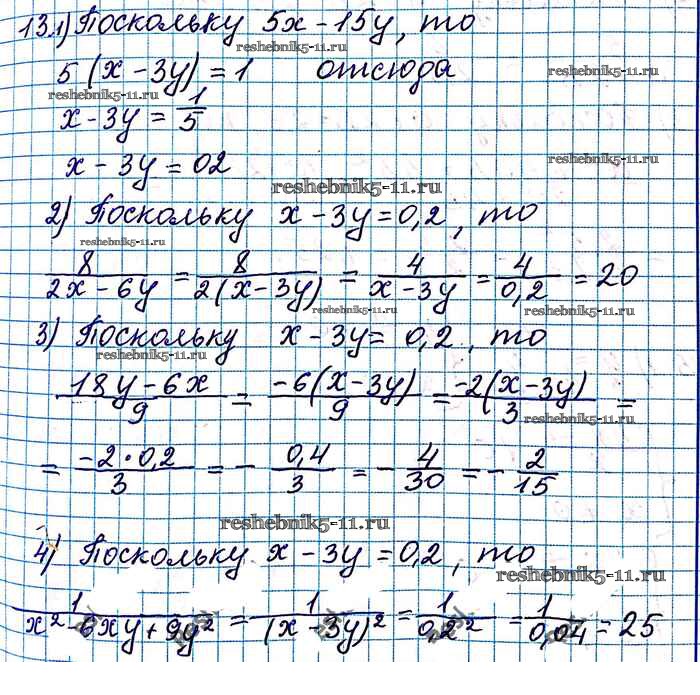 13.1) Поскольку 5x - 15y, то
reshebnik5-11.ru
5 (x - 3y) = 1 отсюда
reshebnik5-11.ru reshebnik5-11.ru
x - 3y = 1/5
x - 3y = 02
reshebnik5-11.ru
reshebnik5-11.ru
2) Поскольку x - 3y = 0,2, то
reshebnik5-11.ru
8/(2x - 6y) = 8/(2(x - 3y)) = 4/(x - 3y) = 4/0,2 = 20
reshebnik5-11.ru reshebnik5-11.ru
3) Поскольку x - 3y = 0,2, то
reshebnik5-11.ru
(18y - 6x)/9 = (-6(x - 3y))/9 = (-2(x - 3y))/3 =
reshebnik5-11.ru
= (-2 · 0,2)/3 = - 0,4/3 = - 4/30 = - 2/15
reshebnik5-11.ru
4) Поскольку x - 3y = 0,2, то
reshebnik5-11.ru
1/(x² - 6xy + 9y²) = 1/(x - 3y)² = 1/0,2² = 1/0,04 = 25